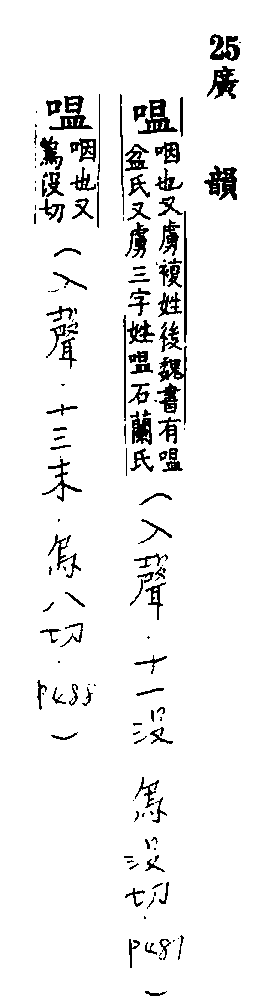 25廣韻
嗢咽也又虜複姓後魏書有嗢
盆氏又虜三字姓嗢石蘭氏
(入聲．十一没 烏没切．P487)
嗢咽也又
烏没切
(入聲．十三末．烏八切．P488)